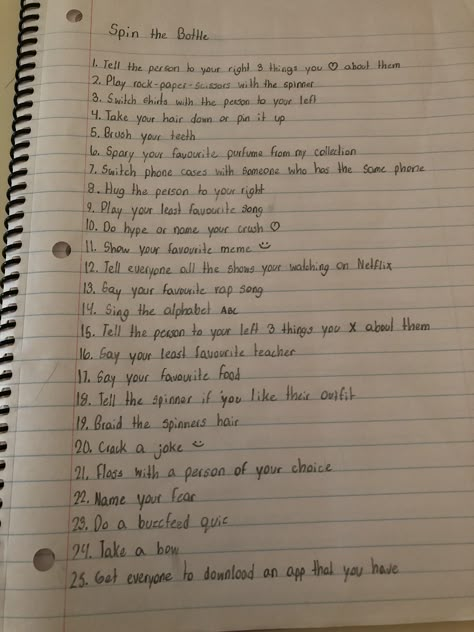 Spin the Bottle
1. Tell the person to your right 3 things you ♡ about them
2. Play rock-paper-scissors with the spinner
3. Switch shirts with the person to your left
4. Take your hair down or pin it up
5. Brush your teeth
6. Spary your favourite purfume from my collection
7. Switch phone cases with someone who has the same phone
8. Hug the person to your right
9. Play your least favourite song
10. Do hype or name your crush ♡
11. Show your favourite meme ☺
12. Tell everyone all the shows your watching on Netflix
13. Say your favourite rap song
14. Sing the alphabet ABC
15. Tell the person to your left 3 things you X about them
16. Say your least favourite teacher
17. Say your favourite food
18. Tell the spinner if you like their outfit
19. Braid the spinners hair
20. Crack a joke ☺
21. Floss with a person of your choice
22. Name your fear
23. Do a buzzfeed quiz
24. Take a bow
25. Get everyone to download an app that you have